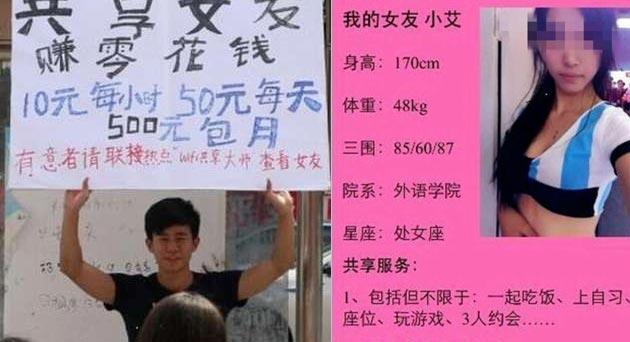 共享女友
赚零花钱
10元每小时 50元每天
500元包月
有意者请联接热点"wifi共享大师"查看女友
我的女友 小艾
身高：170cm
体重：48kg
三围：85/60/87
院系：外语学院
星座：处女座
共享服务：
1、包括但不限于：一起吃饭、上自习、
座位、玩游戏、3人约会……